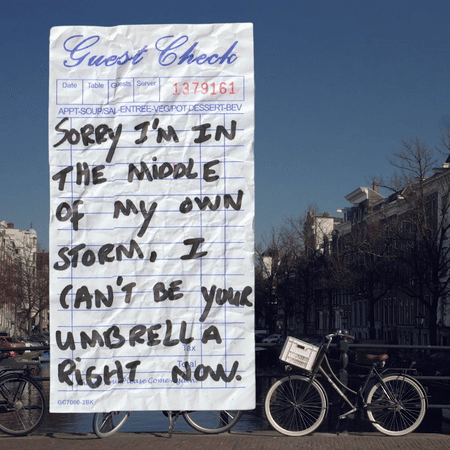 Guest Check
Date Table Guests Server 1379161
APPT-SOUP/SAL-ENTREE-VEG/POT-DESSERT-BEV
SORRY I'M IN
THE MIDDLE
OF MY OWN
STORM, I
CAN'T BE YOUR
UMBRELLA
Tax
Total
RIGHT NOW.
Please Come